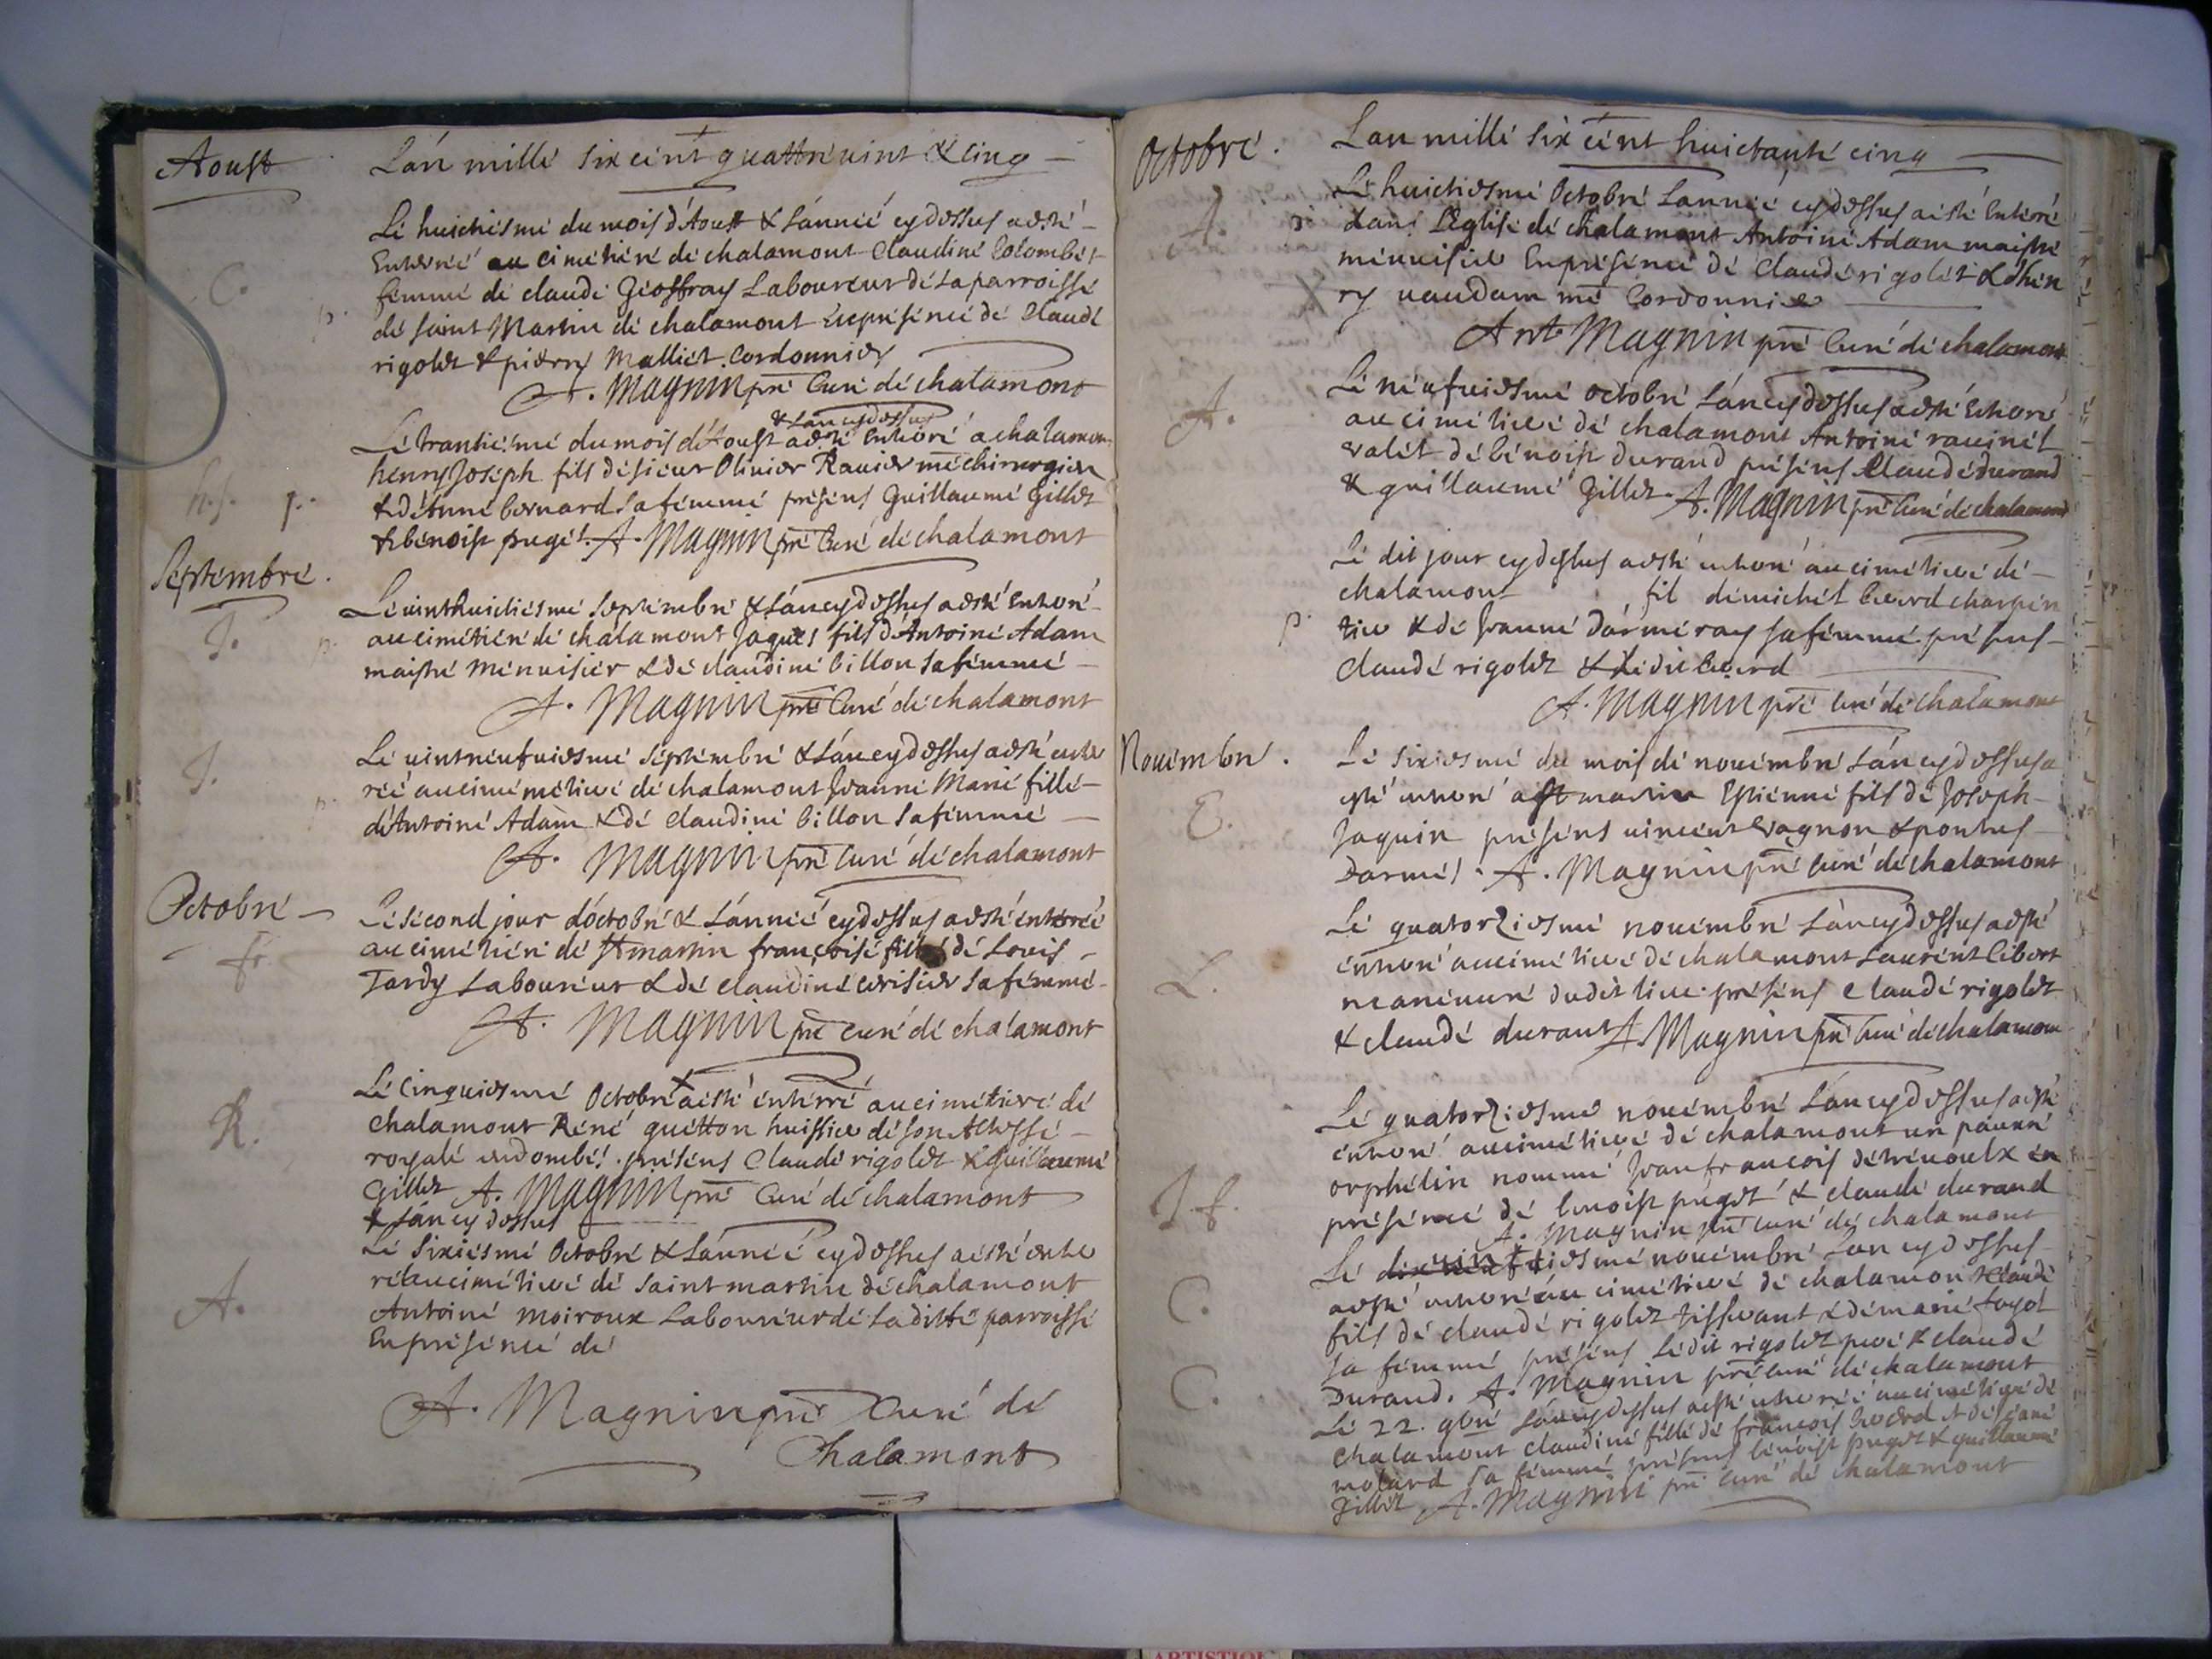 Aoust
Lán millé six cént quattreuint & cinq
Lé huictiésmé du mois d'Aoust & Lánneé cy dessus a esté
Enterreé au cimétiéré dé chalamont Claudiné Colombét
C.
fémmé dé claudé Géoffray Laboureur dé la parroissé
p.
dé saint Martin dé chalamont Enprésénce dé Claudé
rigolet & piérré Malliét Cordonnier
A. Magnin pré Curé dé chalamont
& Lan cy dessus
Lé trantiésmé du mois d'Aoust a esté Enterré a chalamon
henry Joséph fils dé siéur Oliuier Rauier mé chirurgien
h.J. p.
& d'étunné bernard sa fémmé présens Guillaumé Gillet
& bénoist pugét. A. Magnin pré Curé dé chalamont
Séptémbré.
Lé uinthuictiésmé Séptémbré & Lán cy dessus a esté Enterré
J. p.
au cimétiéré dé chalamont Jaques fils d'Antoiné Adam
maistré Ménuisiér & dé claudiné billon sa fémmé
A. Magnin pré Curé dé chalamont
Lé uintnéufuiesmé Séptémbré & Lán cy dessus a esté enter
J. p.
reé au cimémétieré dé chalamont Jeanné Marié fillé
d'Antoiné Adam & dé claudiné billon sa fémmé
A. Magnin pré Curé dé chalamont
Octobré
Lé sécond jour d'octobré & Lánneé cy dessus a esté enterreé
fr.
au cimétiéré dé St martin françoisé fillé dé Louis
Tardy Labouréur & dé claudiné cerisier sa fémmé
A. Magnin pré curé dé chalamont
Lé Cinquiesmé Octobré a esté entérré au cimétieré dé
R.
chalamont Réné guétton huissier dé son Altessé
royalé en dombés. présens Claudé rigolet & Guillaumé
Gillet A. Magnin pré Curé dé chalamont
& Lán cy dessus
Lé Sixiésmé Octobré & Lánneé cy dessus a esté enter
A.
ré au cimétieré dé saint martin dé chalamont
Antoiné moiroux Labouréur dé laditté parroissé
Enprésénce dé
A. Magnin pré Curé dé
Chalamont
Octobré.
Lan millé six cént huictanté cinq
Lé huictiesmé Octobré Lanneé cy dessus a esté Enterré
A.
dans L'égliſé dé chalamont Antoiné Adam maistré
ménuisier Enprésénce dé Claudé rigolét & dhén
ry uaudam mé Cordonnier
Ant. Magnin pré Curé dé chalamont
Lé néufuiesmé octobré Lán cy dessus a esté Enterré
A.
au cimétieré dé chalamont Antoiné rauinét
valét dé bénoist durand présens Claudé durand
& guillaumé Gillet. A. Magnin pré Curé dé chalamont
Lé dit jour cy dessus a esté enterré au cimétieré dé
chalamont fil dé michél beard charpén
p.
tier & dé Jeanné dárméray sa fémmé présens
Claudé rigolet & Lédit beard
A. Magnin pré curé dé chalamont
Nouémbré.
Lé Sixiesmé du mois dé nouémbré Lán cy dessus a
esté enterré a St martin Estiénné fils dé Joseph
E.
Jaquin présens uincent vagnon & pontus
Darmés. A. Magnin pré Curé dé chalamont
Lé quatorziesmé nouémbré Lán cy dessus a esté
énterré au cimétieré dé chalamont Laurént libert
L.
manéuuré dudit lieu. présens Claudé rigolet
& claudé durant A. Magnin pré Curé dé chalamont
Lé quatorziesmé nouémbré Lán cy dessus a esté
énterré au cimétieré dé chalamont un pauuré
orphélin nommé Jean francois détréuoulx én
J.f.
présénce dé bénoist puget & claudé durand
A. Magnin pré curé dé chalamont
Lé uintiesmé nouémbré Lan cy dessus
C.
a esté enterré au cimétieré dé chalamont Claudé
fils dé claudé rigolet tisserant & dé marié fayol
sa fémmé présens Lédit rigolet peré & claudé
C.
Durand. A. Magnin pré curé dé chalamont
Lé 22. gbré Lán cy dessus a esté enterreé au cimétieré dé
chalamont claudiné fillé dé francois beard et dé jané
molard sa fémmé présens bénoist puget & guillaumé
gillet A. Magnin pré curé dé chalamont